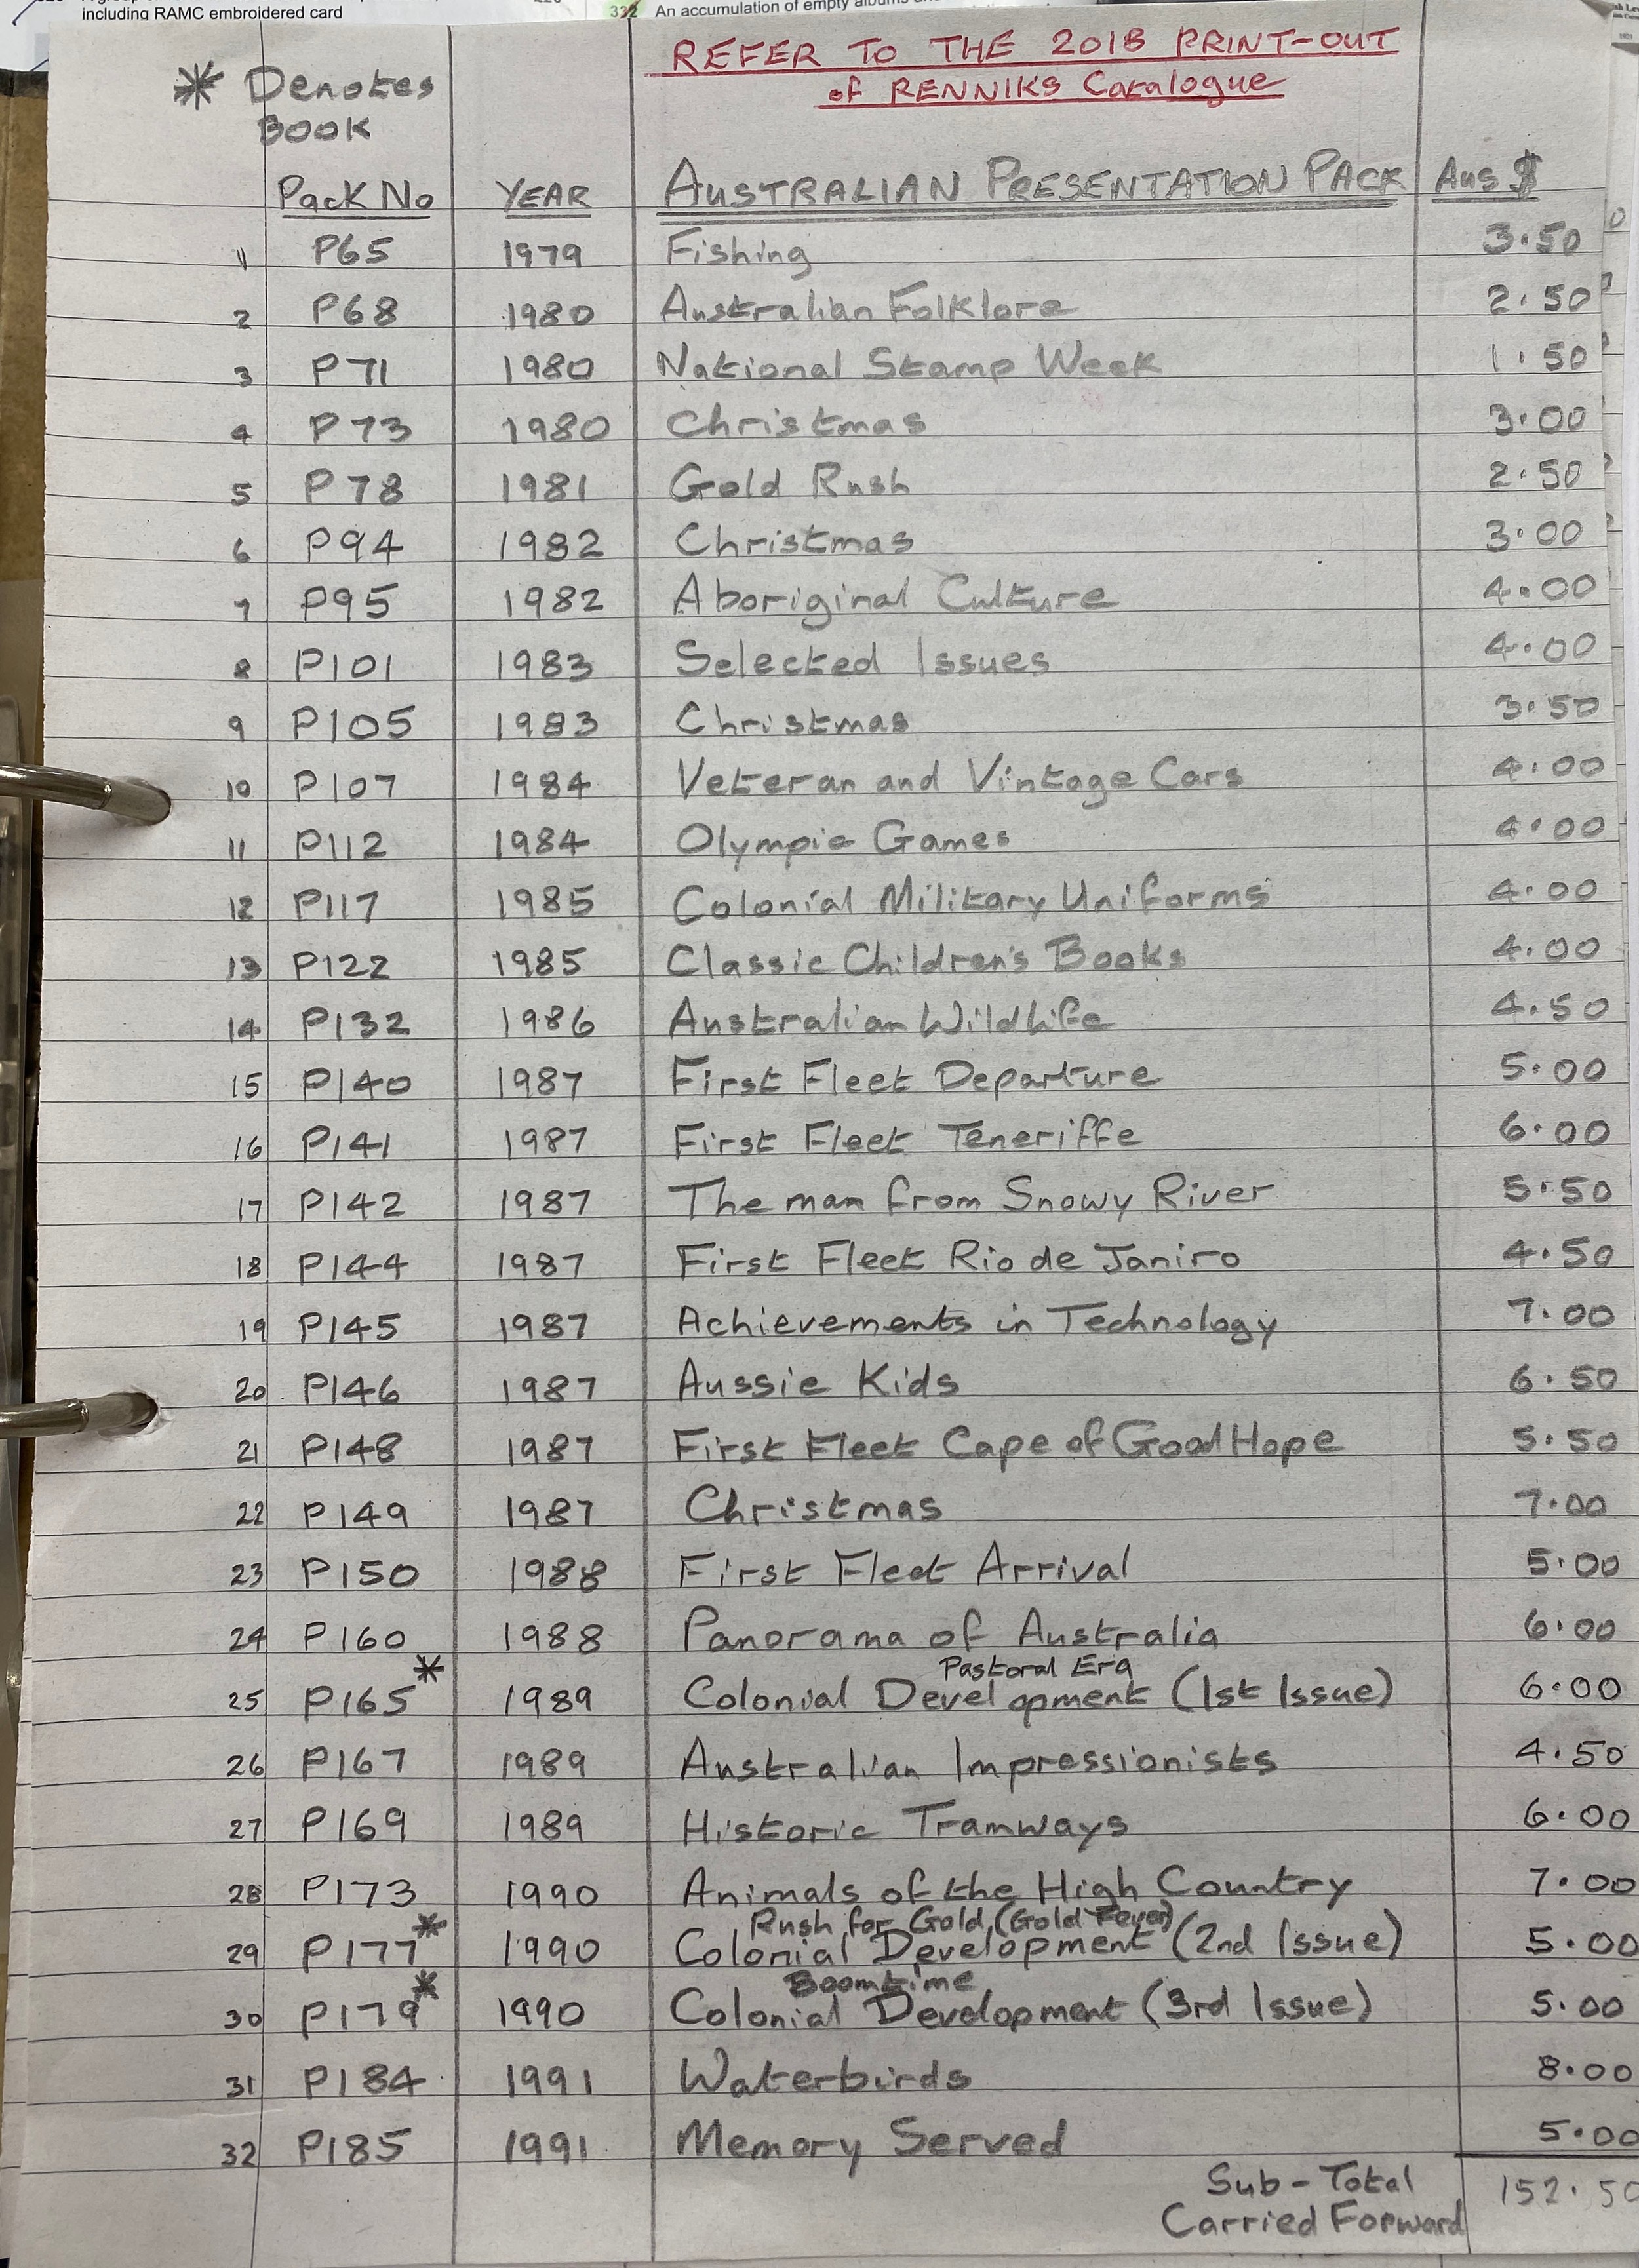 including RAMC embroidered card
332 An accumulation of empty albums
REFER TO THE 2018 PRINT-OUT
of RENNIKS Catalogue
* Denotes
BOOK
Pack No YEAR AUSTRALIAN PRESENTATION PACK Aus $
1 P65 1979 Fishing 3.50
2 P68 1980 Australian Folklore 2.50
3 P71 1980 National Stamp Week 1.50
4 P73 1980 Christmas 3.00
5 P78 1981 Gold Rush 2.50
6 P94 1982 Christmas 3.00
7 P95 1982 Aboriginal Culture 4.00
8 P101 1983 Selected Issues 4.00
9 P105 1983 Christmas 3.50
10 P107 1984 Veteran and Vintage Cars 4.00
11 P112 1984 Olympic Games 4.00
12 P117 1985 Colonial Military Uniforms 4.00
13 P122 1985 Classic Children's Books 4.00
14 P132 1986 Australian Wildlife 4.50
15 P140 1987 First Fleet Departure 5.00
16 P141 1987 First Fleet Teneriffe 6.00
17 P142 1987 The man from Snowy River 5.50
18 P144 1987 First Fleet Rio de Janiro 4.50
19 P145 1987 Achievements in Technology 7.00
20 P146 1987 Aussie Kids 6.50
21 P148 1987 First Fleet Cape of Good Hope 5.50
22 P149 1987 Christmas 7.00
23 P150 1988 First Fleet Arrival 5.00
24 P160 1988 Panorama of Australia 6.00
Pastoral Era
25 P165* 1989 Colonial Development (1st Issue) 6.00
26 P167 1989 Australian Impressionists 4.50
27 P169 1989 Historic Tramways 6.00
28 P173 1990 Animals of the High Country 7.00
Rush for Gold (Gold Fever)
29 P177* 1990 Colonial Development (2nd Issue) 5.00
Boomtime
30 P179* 1990 Colonial Development (3rd Issue) 5.00
31 P184 1991 Waterbirds 8.00
32 P185 1991 Memory Served 5.00
Sub-Total 152.50
Carried Forward